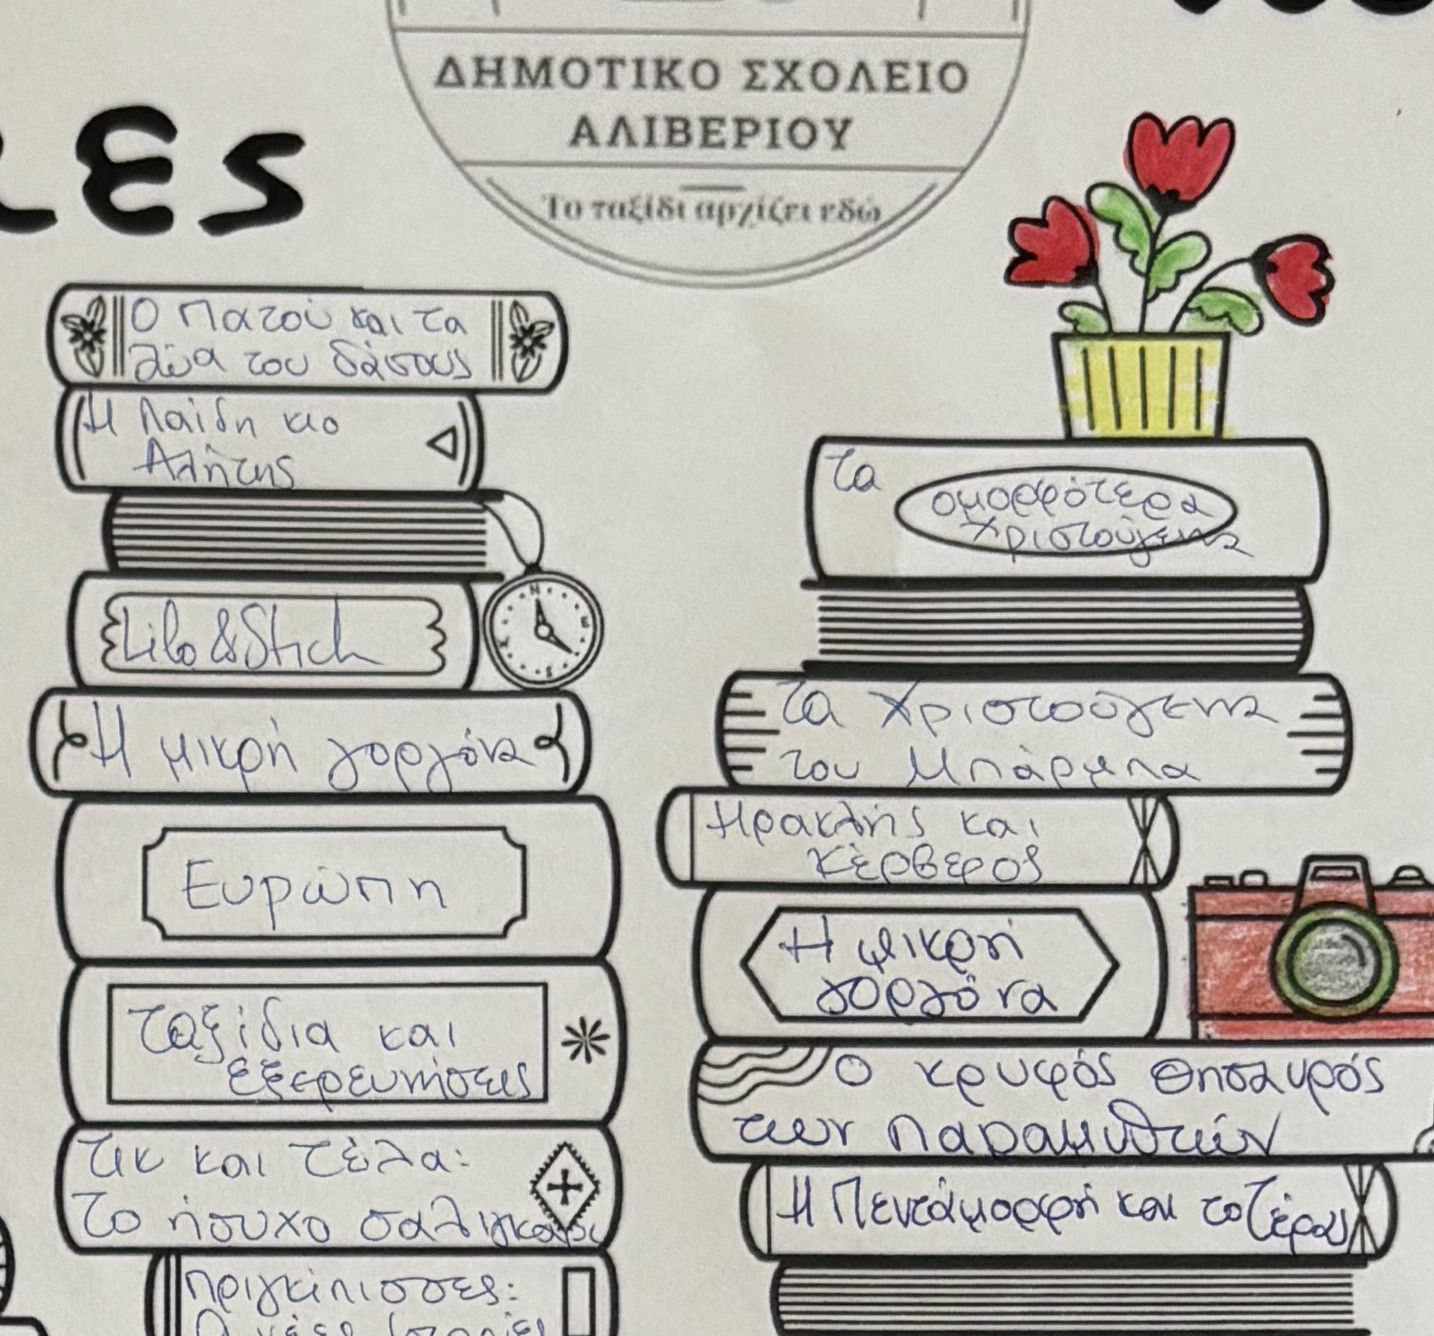 ΔΗΜΟΤΙΚΟ ΣΧΟΛΕΙΟ
ΑΛΙΒΕΡΙΟΥ
Το ταξίδι αρχίζει εδώ
ες
Ο Πατού και τα
ζώα του δάσους
Η Λαίδη κιο
Αλήτης
Lilo & Stich
Η μικρή γοργόνα
Ευρώπη
Ταξίδια και
εξερευνήσεις
Τικ και Τέλα:
Το ήσυχο σαλιγκάρι
Πριγκίπισσες:
τα
ομορφότερα
Χριστούγεννα
Τα Χριστούγεννα
του Μπάρμπα
Ηρακλής και
Κέρβερος
Η μικρή
γοργόνα
Ο κρυφός θησαυρός
των παραμυθιών
Η Πεντάμορφη και το Τέρας